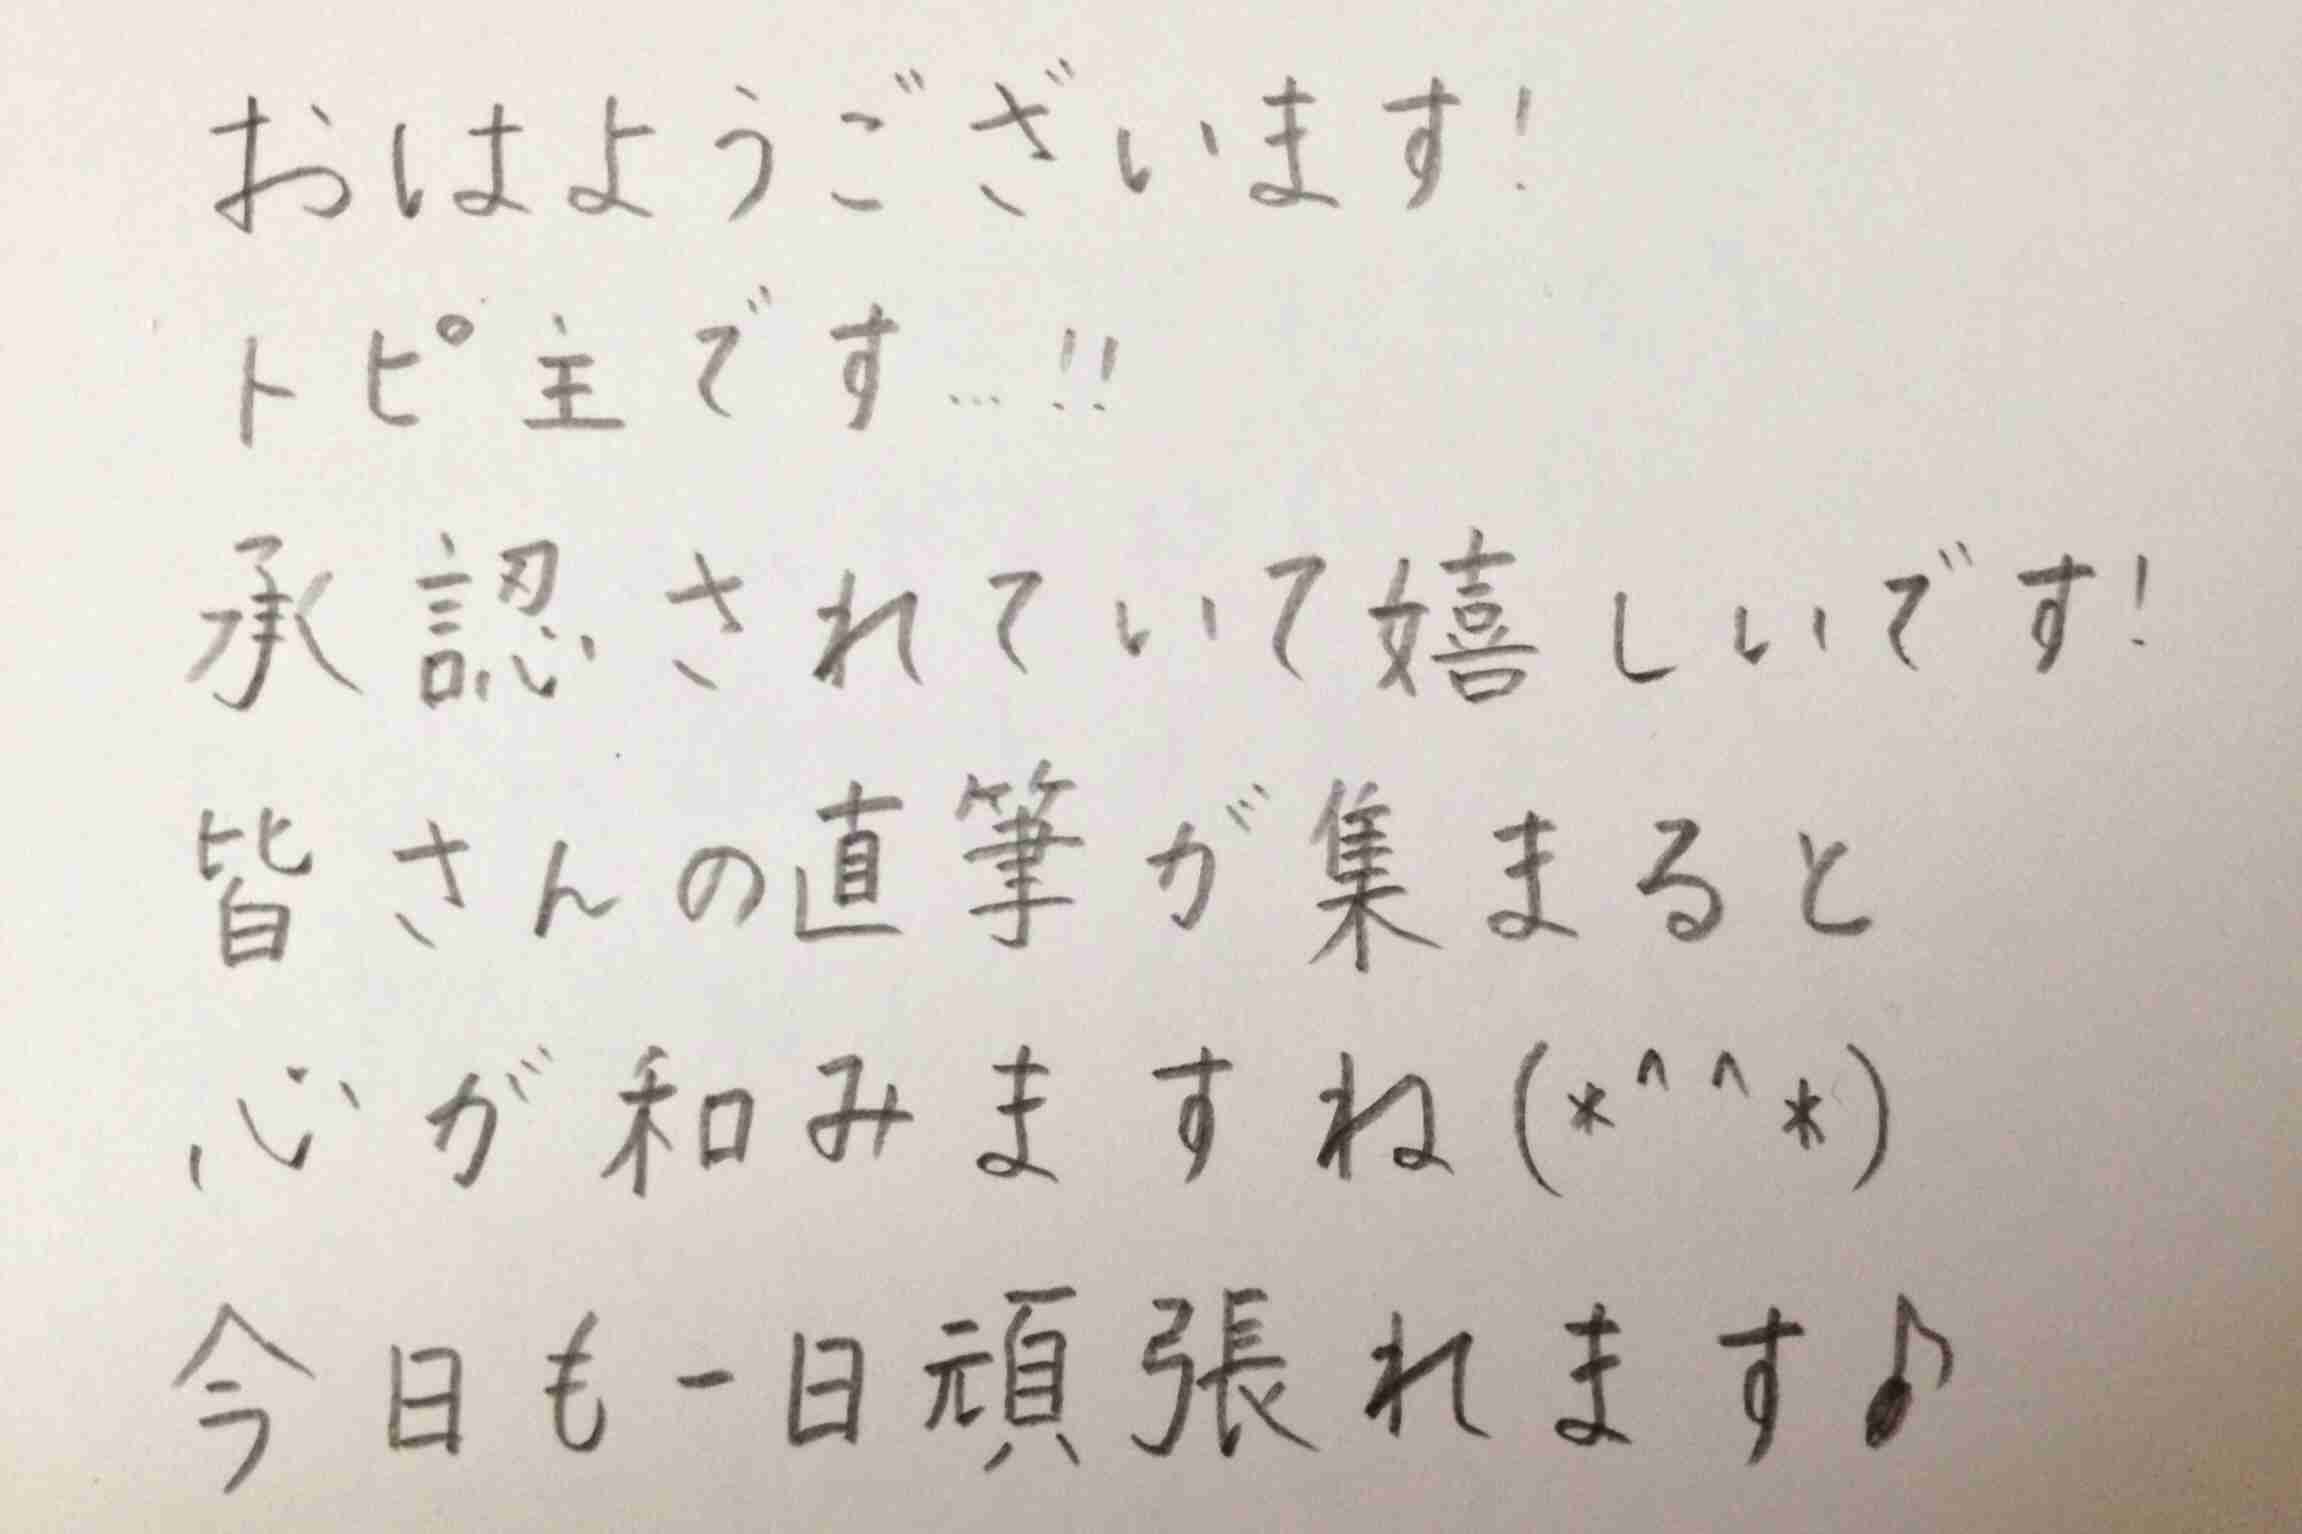 おはようございます!
トピ主です…!!
承認されていて嬉しいです!
皆さんの直筆が集まると
心が和みますね(*^^*)
今日も一日頑張れます♪